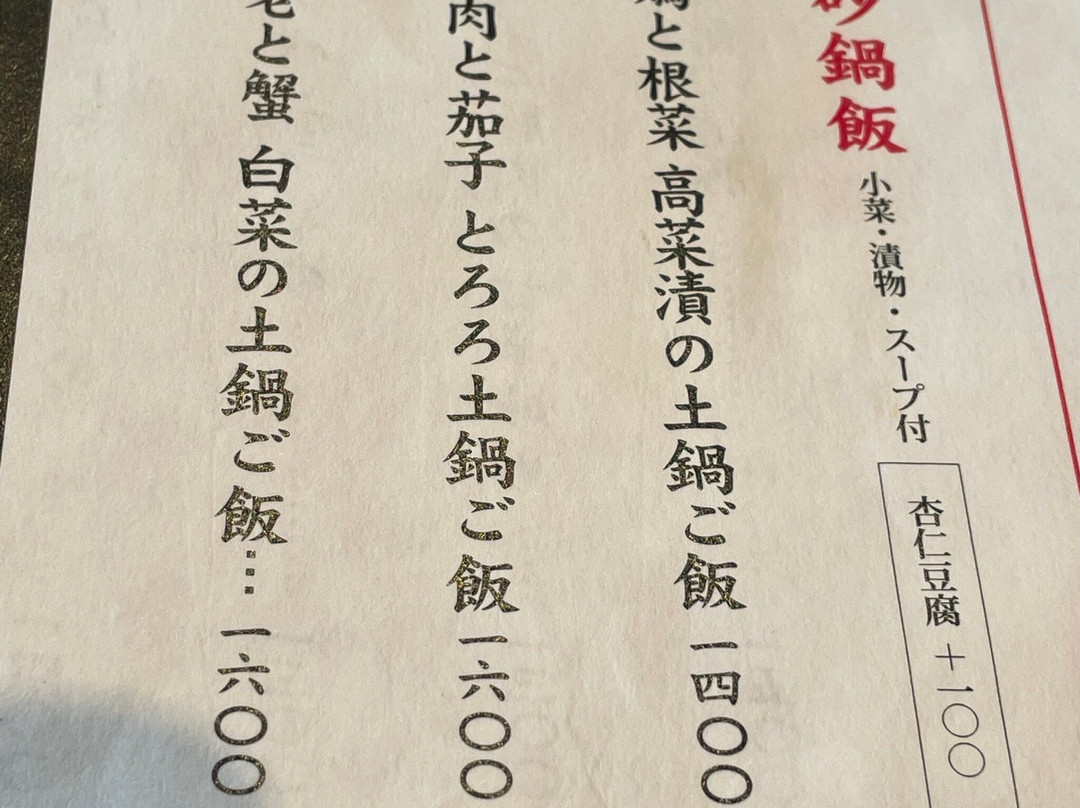 鍋飯
小菜・漬物・スープ付
杏仁豆腐 +一〇〇
と根菜 高菜漬の土鍋ご飯 一四〇〇
肉と茄子 とろろ土鍋ご飯 一六〇〇
と蟹 白菜の土鍋ご飯… 一六〇〇